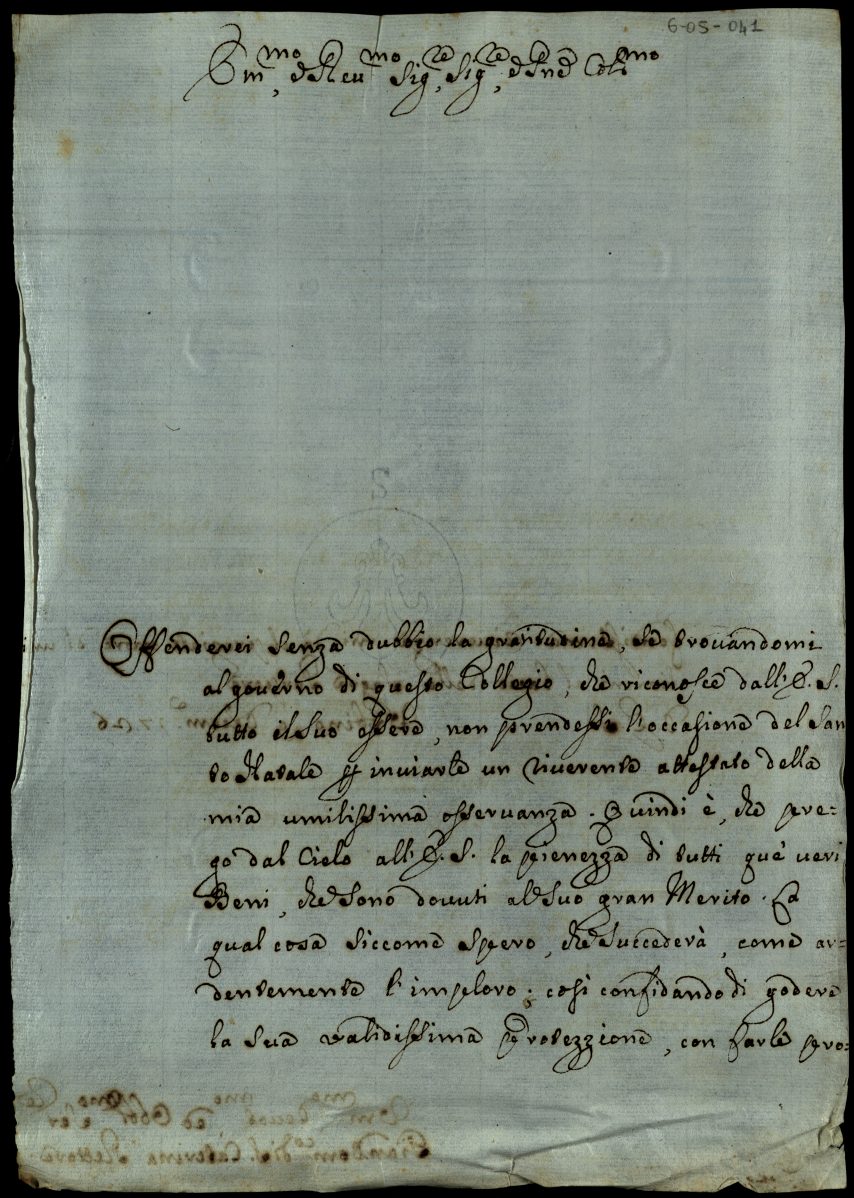 6-05-041
Em.mo, e Reu.mo Sig.re, Sig.re, e Pne Col.mo
Offenderei senza dubbio la gratitudine, se trouandomi
al gouerno di questo Collegio, che riconosce dall'E. S.
tutto il suo essere, non prendessi l'occasione del San
to Natale p inuiarle un riuerente attestato della
mia umilissima osseruanza. Quindi è, che pre=
go dal Cielo all'E. S. la pienezza di tutti que' ueri
Beni, che sono douuti al suo gran Merito. La
qual cosa siccome spero, che succederà, come ar=
dentemente l'imploro; così confidando di godere
la sua validissima Protezzione, con farle pro=